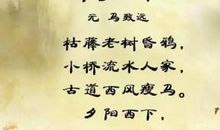 元 马致远
枯藤老树昏鸦，
小桥流水人家，
古道西风瘦马。
夕阳西下，